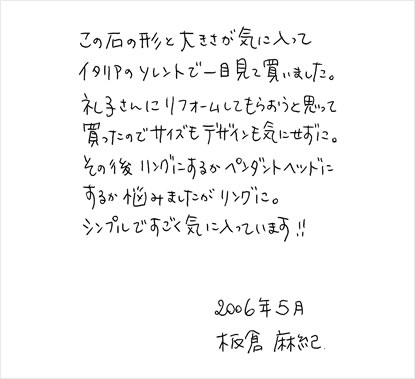 この石の形と大きさが気に入って
イタリアのソレントで一目見て買いました。
礼子さんにリフォームしてもらおうと思って
買ったのでサイズもデザインも気にせずに。
その後リングにするかペンダントヘッドに
するか悩みましたがリングに。
シンプルですごく気に入っています!!
2006年5月
板倉 麻紀